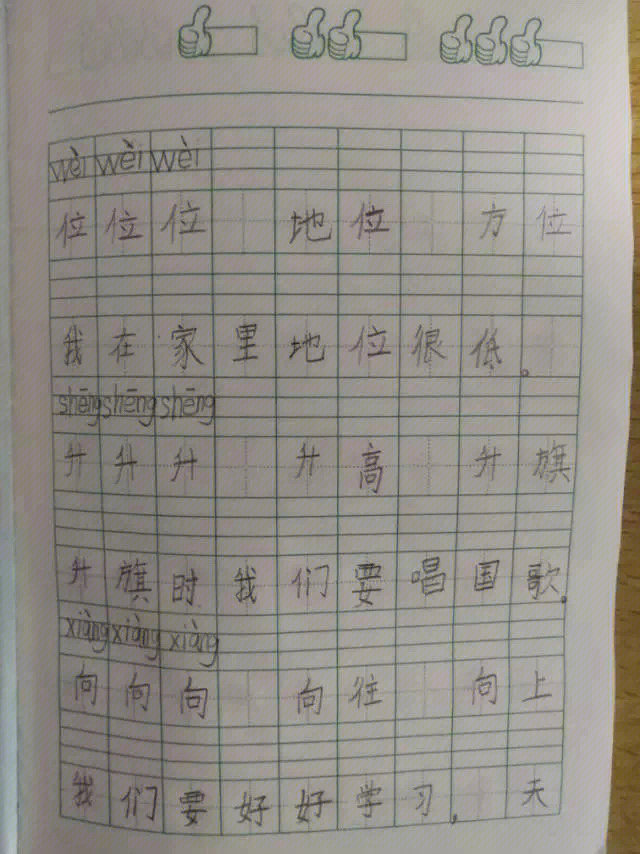 wèi wèi wèi
位位位 地位 方位
我在家里地位很低。
shēng shēng shēng
升升升 升高 升旗
升旗时我们要唱国歌。
xiàng xiàng xiàng
向向向 向往 向上
我们要好好学习,天